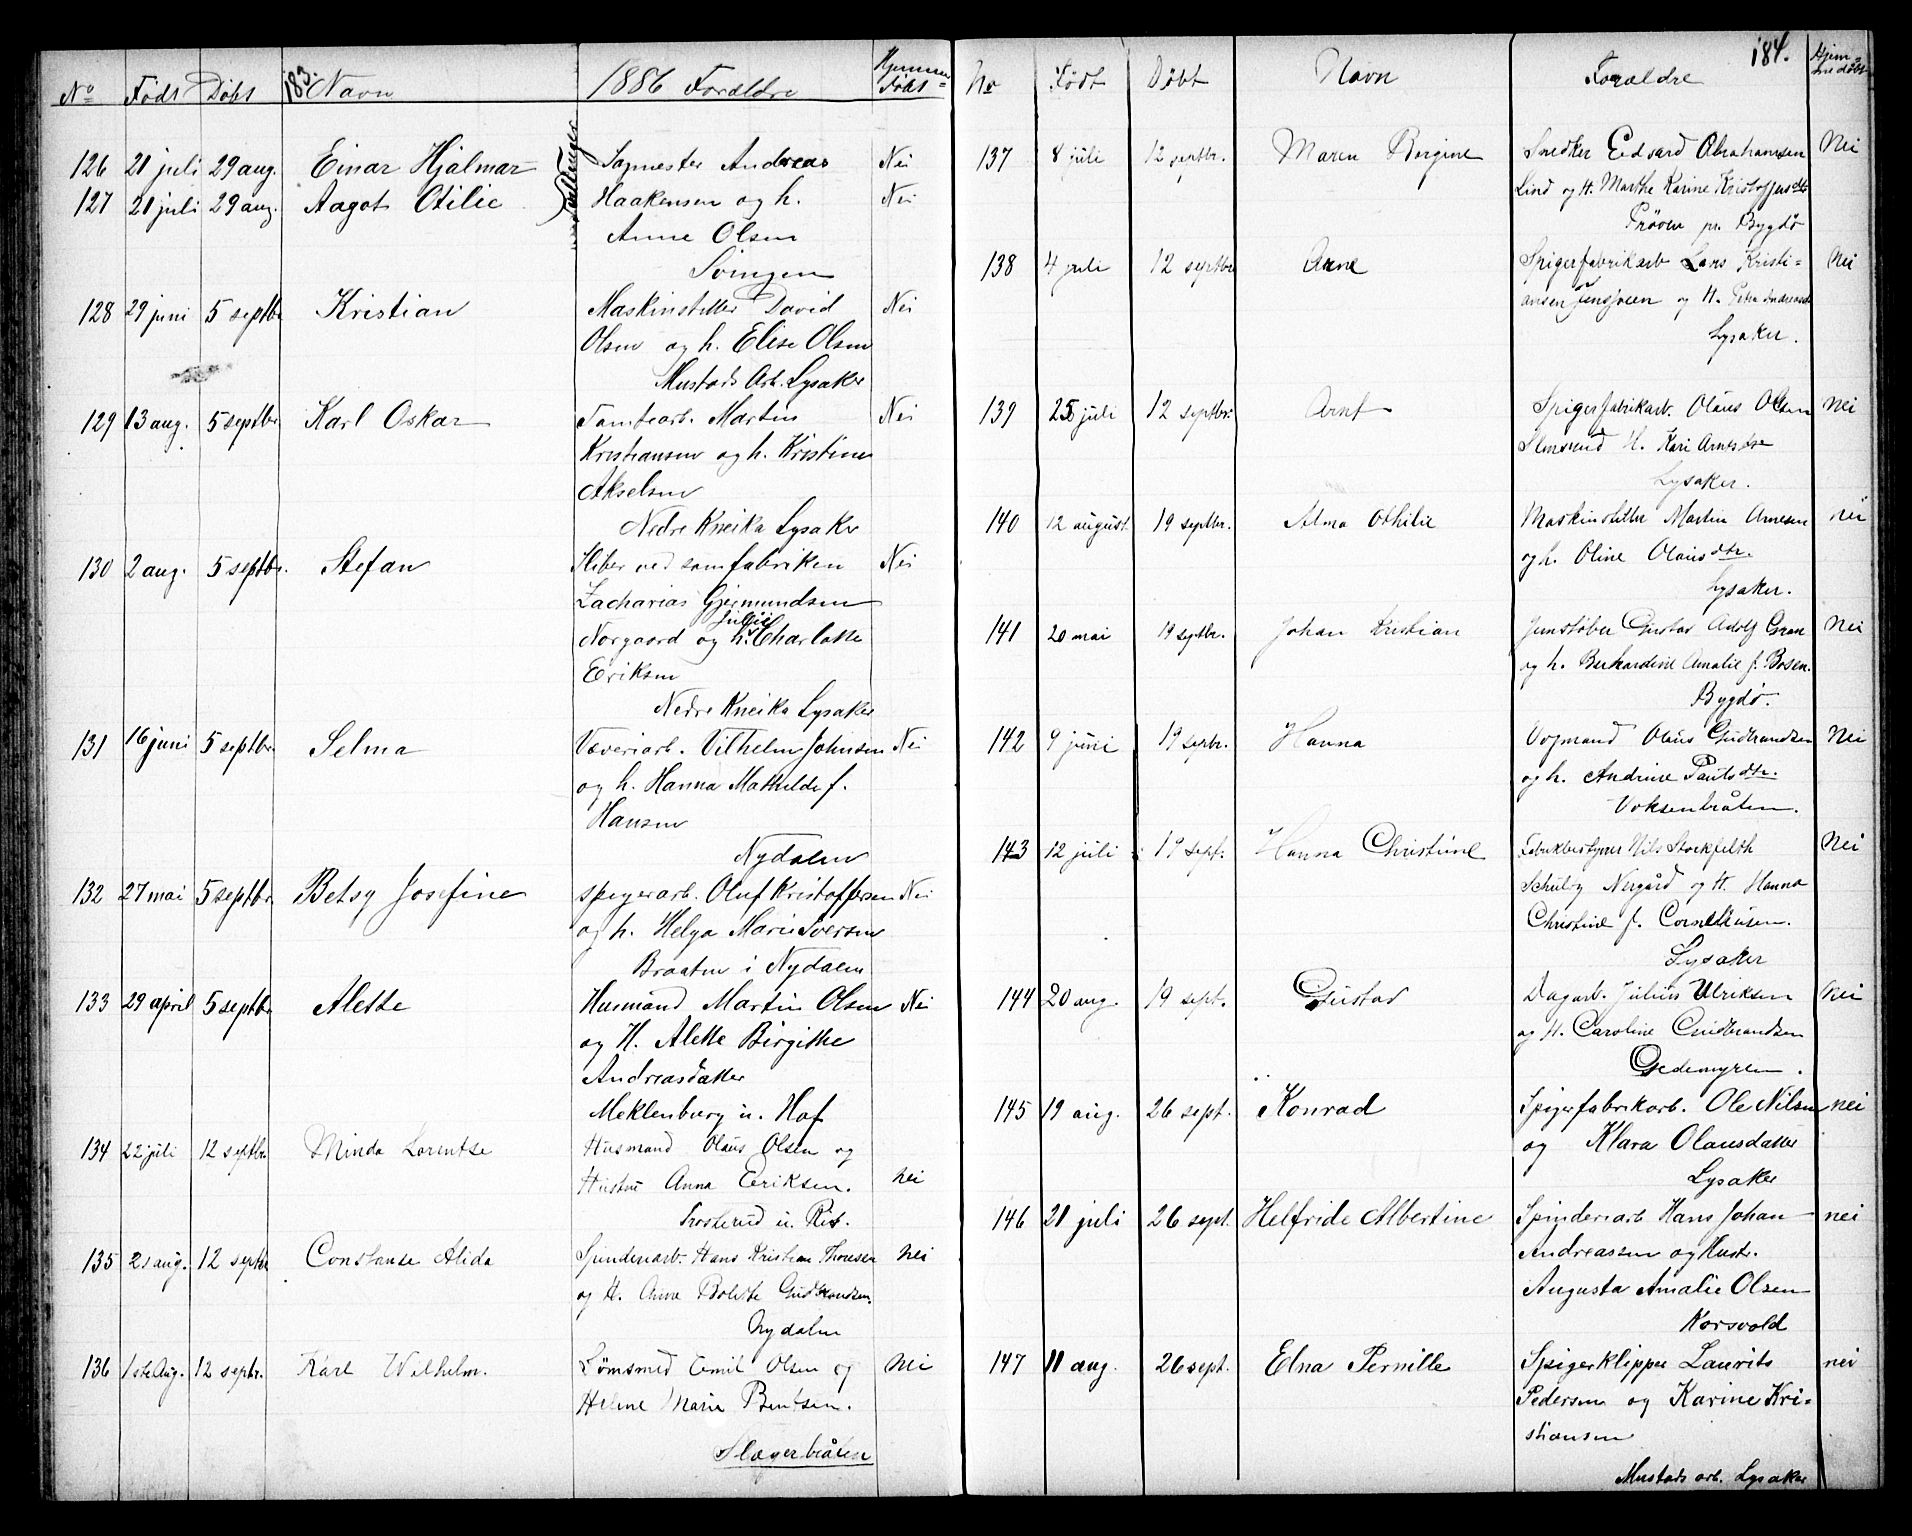 183.
No Født Døbt Navn 1886 Forældre Hjemmedøbt
126 21 juli 29 aug. Einar Hjalmar Sagmester Andreas Nei
127 21 juli 29 aug. Aagot Otilie Tvillinger Haakensen og h. Nei
Anne Olsen
Svingen
128 29 juni 5 septbr Kristian Maskinstiller David Nei
Olsen og h. Elise Olsen
Mustads Arb. Lysaker
129 13 aug. 5 septbr Karl Oskar Tomtearb. Martin Nei
Kristiansen og h. Kristine
Akselsen
Nedre Kneika Lysaker
130 2 aug. 5 septbr. Stefan Sliber ved sømfabriken Nei
Zacharias Gjermundsen
Norgaard og h. Julie Charlotte
Eriksen
Nedre Kneika Lysaker
131 16 juni 5 septbr Selma Væveriarb. Vilhelm Johnsen Nei
og h. Hanna Mathilde f.
Hansen
Nydalen
132 27 mai 5 septbr Betsy Josefine spigerarb. Oluf Kristoffersen Nei
og h. Helga Marie Iversen
Braaten i Nydalen
133 29 april 5 septbr Alette Husmand Martin Olsen Nei
og H. Alette Birgitte
Andreasdatter
Meklenburg u. Hof
134 22 juli 12 septbr Minda Lorentse Husmand Olaus Olsen og
Hustru Anna Eriksen. nei
u. Ris.
135 21 aug. 12 septbr Constanse Alida Spinderiarb. Hans Kristian Thoresen Nei
og H. Anne Bolette Gudbrandsen.
Nydalen
136 1ste Aug. 12 septr. Karl Wilhelm. Lømsmed Emil Olsen og Nei
Helene Marie Bentsen.
Slagerbråten
184.
No Født Døbt Navn Forældre Hjemmedøbt
137 8 juli 12 septbr. Maren Borgine Snedker Edvard Abrahamsen Nei
Lind og H. Marthe Karine Kristoffersdtr
Prøven pr. Bygdø
138 4 juli 12 septbr Arne Spigerfabrikarb Lars Kristi- Nei
ansen Jensveen og H. Petra Andreasdtr
Lysaker.
139 25 juli 12 septbr. Arnt Spigerfabrikarb. Olaus Olsen Nei
H. Kari Arnesdtr
Lysaker.
140 12 august. 19 septbr. Alma Othilie Maskinstiller Martin Arnesen nei
og h. Oline Olausdtr.
Lysaker.
141 20 mai 19 septbr. Johan Kristian Jernstøber Gustav Adolf Gran Nei
og h. Berhardine Amalie f. Bosen.
Bygdø.
142 9 juni 19 septbr. Hanna Vognmand Olaus Gudbrandsen Nei
og h. Andrine Paulsdtr.
Voksenbråten.
143 12 juli 19 sept. Hanna Christine Fabrikbestyrer Nils Stockfleth Nei
Schulz Nergård og H. Hanna
Christine f. Corneliusen.
Lysaker
144 20 aug. 19 sept. Gustav Dagarb. Julius Ulriksen Nei
og H. Caroline Gudbrandsen
Gedemyren.
145 19 aug. 26 sept. Konrad Spigerfabrikarb. Ole Nilsen nei
og Klara Olausdatter
Lysaker
146 21 juli 26 sept. Helfride Albertine Spinderiarb Hans Johan nei
Andreassen og Hustr.
Augusta Amalie Olsen
Korsvold
147 11 aug. 26 sept. Elna Pernille Spigerklipper Laurits nei
Pedersen og Karine Kri-
stiansen
Mustads arb. Lysaker